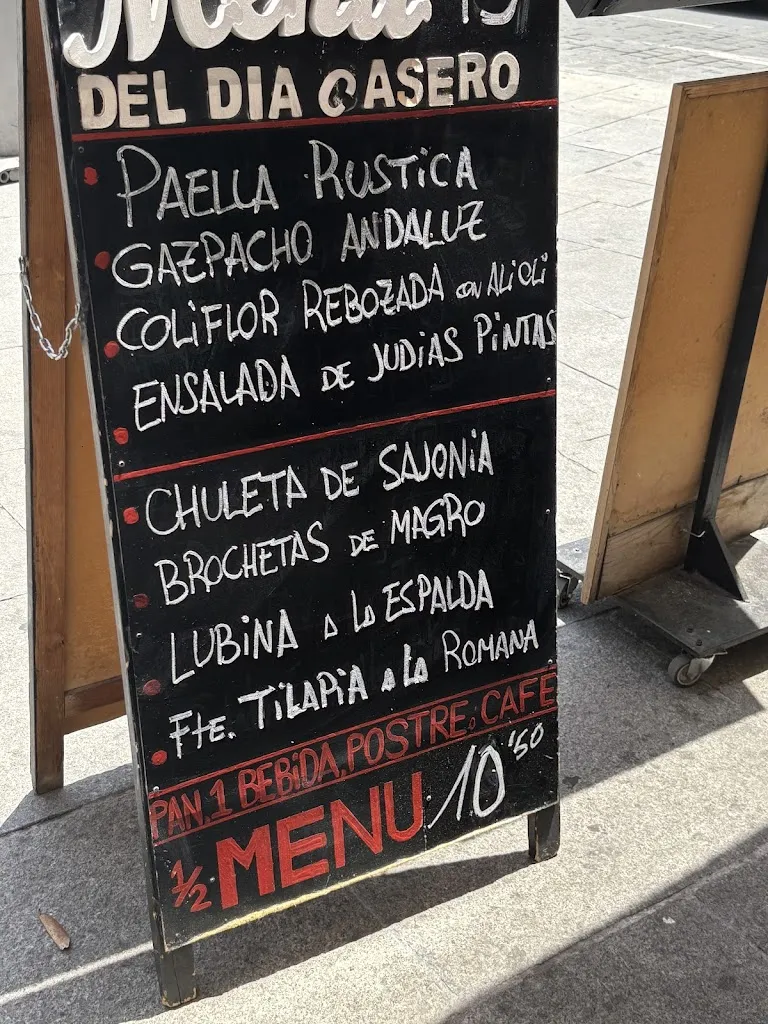 Menú
DEL DIA CASERO
PAELLA RUSTICA
GAZPACHO ANDALUZ
COLIFLOR REBOZADA CON ALIOLI
ENSALADA DE JUDIAS PINTAS
CHULETA DE SAJONIA
BROCHETAS DE MAGRO
LUBINA A LA ESPALDA
Fte. TILAPIA A LA ROMANA
PAN, 1 BEBIDA, POSTRE O CAFÉ
1/2 MENU 10'50